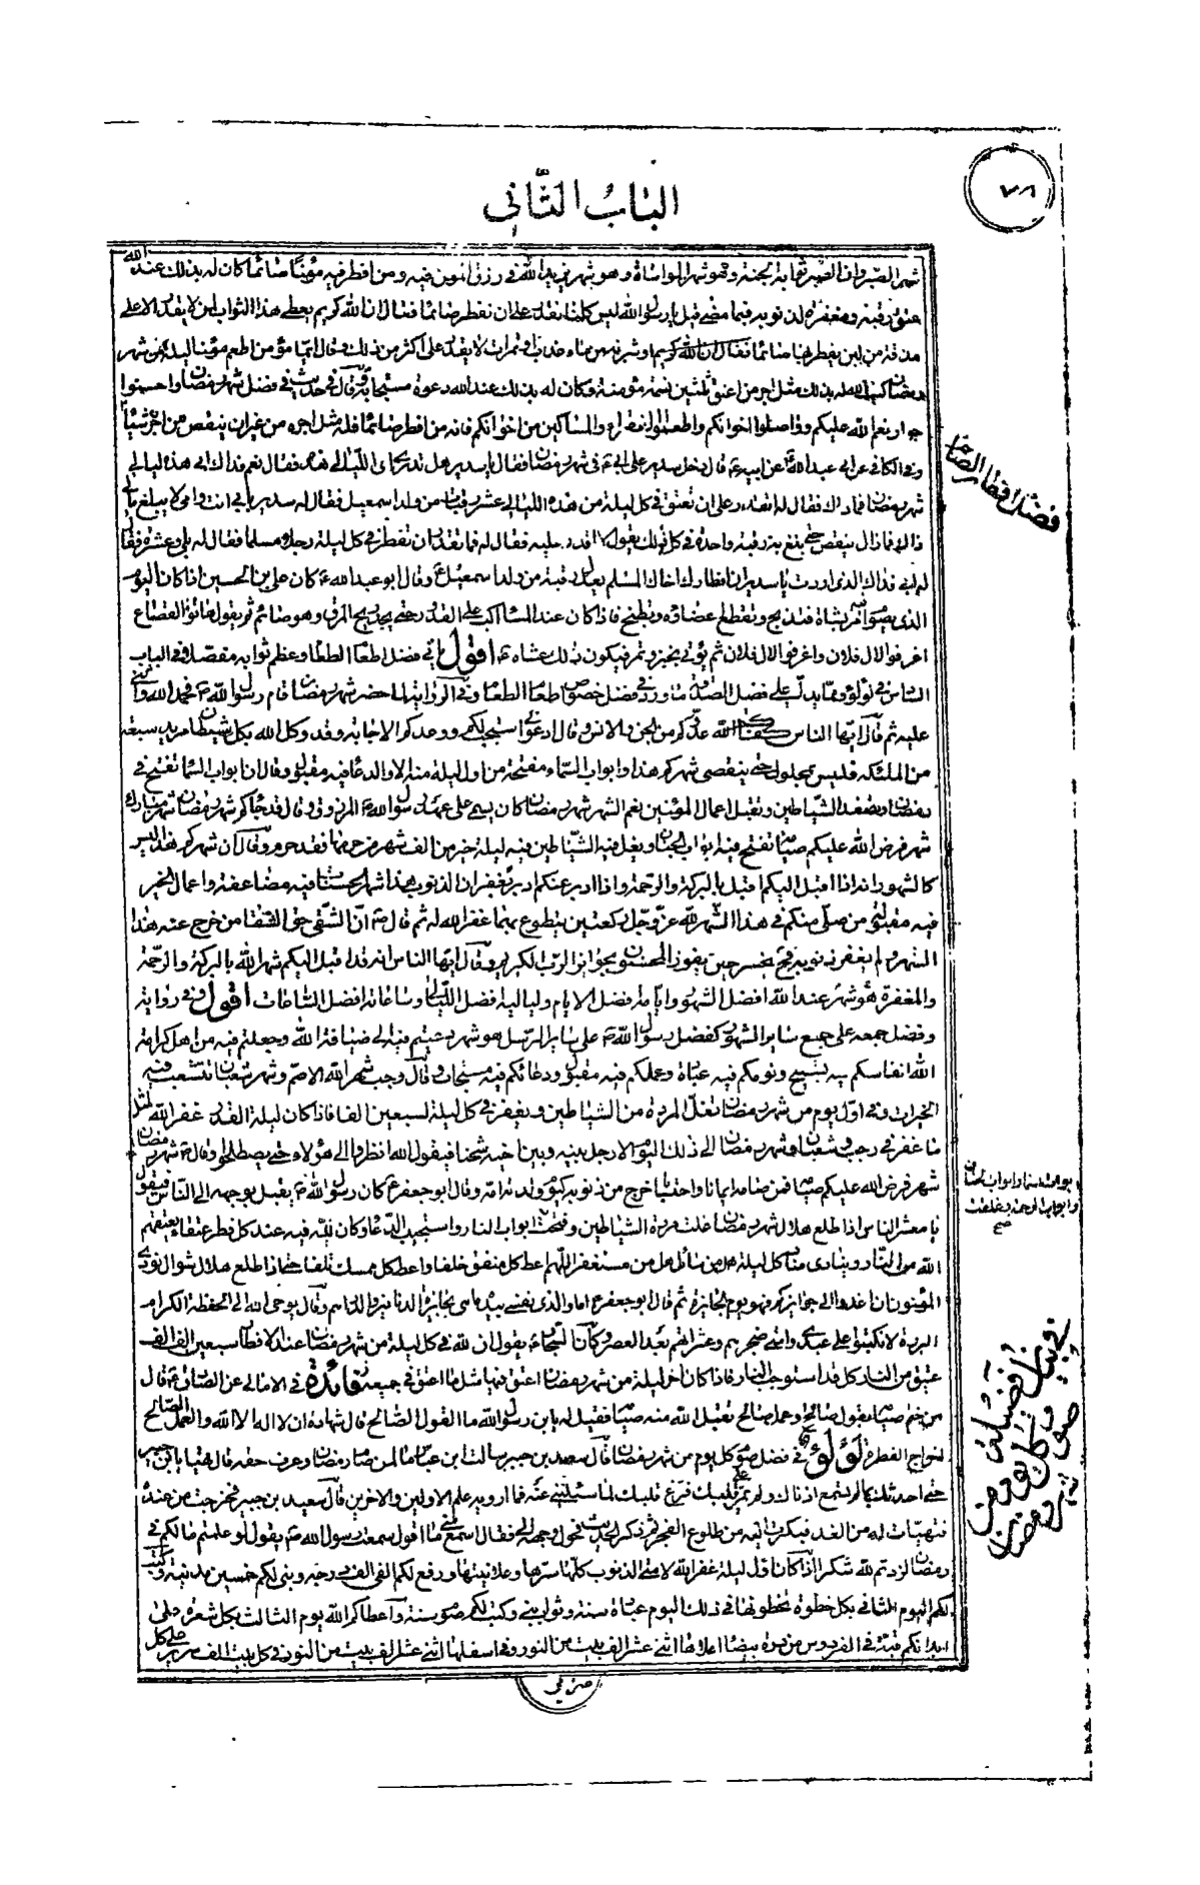 ٧٨
الباب الثاني
شهر الصبر وان الصبر ثوابه الجنة وهو شهر المواساة وهو شهر يزيد الله في رزق المؤمن فيه ومن افطر فيه مؤمنا صائما كان له بذلك عند الله
عتق رقبة ومغفرة لذنوبه فيما مضى قيل يا رسول الله ليس كلنا يقدر على ان نفطر صائما فقال ان الله كريم يعطي هذا الثواب لمن لا يقدر الا على
مذقة من لبن يفطر بها صائما او شربة من ماء عذب او تمرات لا يقدر على اكثر من ذلك وقال ايما مؤمن اطعم مؤمنا ليلة من شهر
رمضان كتب الله له بذلك مثل اجر من اعتق ثلثين نسمة مؤمنة وكان له بذلك عند الله دعوة مستجابة وقال في حديث في فضل شهر رمضان واحسنوا
جوار نعم الله عليكم وتواصلوا اخوانكم واطعموا الفقراء والمساكين من اخوانكم فانه من افطر صائما فله مثل اجره من غير ان ينقص من اجره شيئا
وفي الكافي عن ابي عبد الله عن ابيه قال دخل سدير على ابي في شهر رمضان فقال يا سدير هل تدري اي الليالي هذه فقال نعم فداك ابي هذه ليالي
شهر رمضان فما ذاك فقال له اتقدر على ان تعتق في كل ليلة من هذه الليالي عشر رقبات من ولد اسمعيل فقال له سدير بابي انت وامي لا يبلغ مالي
ذاك فما زال ينقص حتى بلغ به رقبة واحدة في كل ذلك يقول لا اقدر عليه فقال له فما تقدر ان تفطر في كل ليلة رجلا مسلما فقال له بلى وعشرة فقال
له ابي فذاك الذي اردت يا سدير ان افطارك اخاك المسلم يعدل رقبة من ولد اسمعيل وقال ابو عبد الله كان علي بن الحسين اذا كان اليوم
الذي يصوم امر بشاة فتذبح وتقطع اعضاؤه وتطبخ فاذا كان عند المساء اكب على القدور حتى يجد ريح المرق وهو صائم ثم يقول هاتوا القصاع
اغرفوا لال فلان واغرفوا لال فلان ثم يؤتى بخبز وتمر فيكون ذلك عشاه اقول ياتي فضل اطعام الطعام وعظم ثوابه مفصلا في الباب
عليه ثم قال ايها الناس كفاكم الله عدوكم من الجن والانس وقال ادعوني استجب لكم ووعدكم الاجابة وقد وكل الله بكل شيطان مريد سبعة
من الملئكة فليس بمحلول حتى ينقضي شهركم هذا وابواب السماء مفتحة من اول ليلة منه الا والدعاء فيه مقبول وقال ان ابواب السماء تفتح في
رمضان وتصفد الشياطين وتقبل اعمال المؤمنين نعم الشهر شهر رمضان كان يسمى على عهد رسول الله المرزوق وقال قد جاءكم شهر رمضان شهر مبارك
شهر فرض الله عليكم صيامه تفتح فيه ابواب الجنان ويغل فيه الشياطين فيه ليلة خير من الف شهر من حرمها فقد حرم وقال ان شهركم هذا ليس
كالشهور انه اذا اقبل اليكم اقبل بالبركة والرحمة واذا ادبر عنكم ادبر بغفران الذنوب هذا شهر الحسنات فيه مضاعفة واعمال الخير
فيه مقبولة من صلى منكم في هذا الشهر لله عز وجل ركعتين يتطوع بهما غفر الله له ثم قال ان الشقي حق الشقا من خرج عنه هذا
الشهر ولم يغفر ذنوبه فحينئذ يخسر حين يفوز المحسنون بجوائز الرب الكريم وقال ايها الناس انه قد اقبل اليكم شهر الله بالبركة والرحمة
والمغفرة هو شهر عند الله افضل الشهور وايامه افضل الايام ولياليه افضل الليالي وساعاته افضل الساعات اقول وفي رواية
وفضل جمعه على جمع ساير الشهور كفضل رسول الله على ساير الرسل هو شهر دعيتم فيه الى ضيافة الله وجعلتم فيه من اهل كرامة
الله انفاسكم فيه تسبيح ونومكم فيه عبادة وعملكم فيه مقبول ودعائكم فيه مستجاب وقال رجب شهر الله الاصم وشهر شعبان تتشعب فيه
الخيرات وفي اول يوم من شهر رمضان تغل المردة من الشياطين ويغفر في كل ليلة لسبعين الفا فاذا كان ليلة القدر غفر الله لمثل
ما غفر في رجب وشعبان وشهر رمضان الى ذلك اليوم الا رجل بينه وبين اخيه شحنا فيقول الله انظروا الى هؤلاء حتى يصطلحوا وقال شهر رمضان
شهر فرض الله عليكم صيامه فمن صامه ايمانا واحتسابا خرج من ذنوبه كيوم ولدته امه وقال ابو جعفر كان رسول الله يقبل بوجهه الى الناس فيقول
يا معشر الناس اذا طلع هلال شهر رمضان غلت مردة الشياطين وفتحت ابواب النار واستجيب الدعاء وكان لله فيه عند كل فطر عتقاء يعتقهم
الله من النار وينادي مناد كل ليلة هل من سائل هل من مستغفر اللهم اعط كل منفق خلفا واعط كل ممسك تلفا حتى اذا طلع هلال شوال نودي
المؤمنون ان اغدوا الى جوايزكم فهو يوم الجايزة ثم قال ابو جعفر اما والذي نفسي بيده ما هي بجايزة الدنانير والدراهم وقال يوحي الله الى الحفظة الكرام
البررة لا تكتبوا على عبدي وامتي ضجرهم وعثراتهم بعد العصر وكان السجاد يقول ان لله في كل ليلة من شهر رمضان عند الافطار سبعين الف الف
عتيق من النار كل قد استوجب النار فاذا كان اخر ليلة من شهر رمضان اعتق فيها مثل ما اعتق في جميعه فائدة في الامالي عن الصادق قال
من ختم صيامه بقول صالح وعمل صالح تقبل الله منه صيامه فقيل له يا بن رسول الله ما القول الصالح قال شهادة ان لا اله الا الله والعمل الصالح
اخراج الفطرة لؤلؤ في فضل صوم كل يوم من شهر رمضان قال سعيد بن جبير سالت ابن عباس ما لمن صام رمضان وعرف حقه قال تهيا يابن جبير
حتى احدثك بما لم تسمع اذناك ولم يمر على قلبك فرغ قلبك لما سئلتني عنه فما اردته علم الاولين والاخرين قال سعيد بن جبير فخرجت من عنده
فتهيات له من الغد فبكرت اليه من طلوع الفجر ثم ذكر الحديث فحول وجهه الي فقال اسمع مني ما اقول سمعت رسول الله يقول لو علمتم ما لكم في
رمضان لزدتم لله شكرا اذا كان اول ليلة غفر الله لامتي الذنوب كلها سرها وعلانيتها ورفع لكم الفي الف درجة وبنى لكم خمسين مدينة وكتب
لكم اليوم الثاني بكل خطوة تخطونها في ذلك اليوم عبادة سنة وثواب نبي وكتب لكم صوم سنة واعطاكم الله يوم الثالث بكل شعرة على
ابدانكم قبة في الفردوس من درة بيضا اعلاها اثني عشر الف بيت من النور وفي اسفلها اثني عشر الف بيت من النور في كل بيت الف سرير على كل
فضل افطار الصائم
سرير